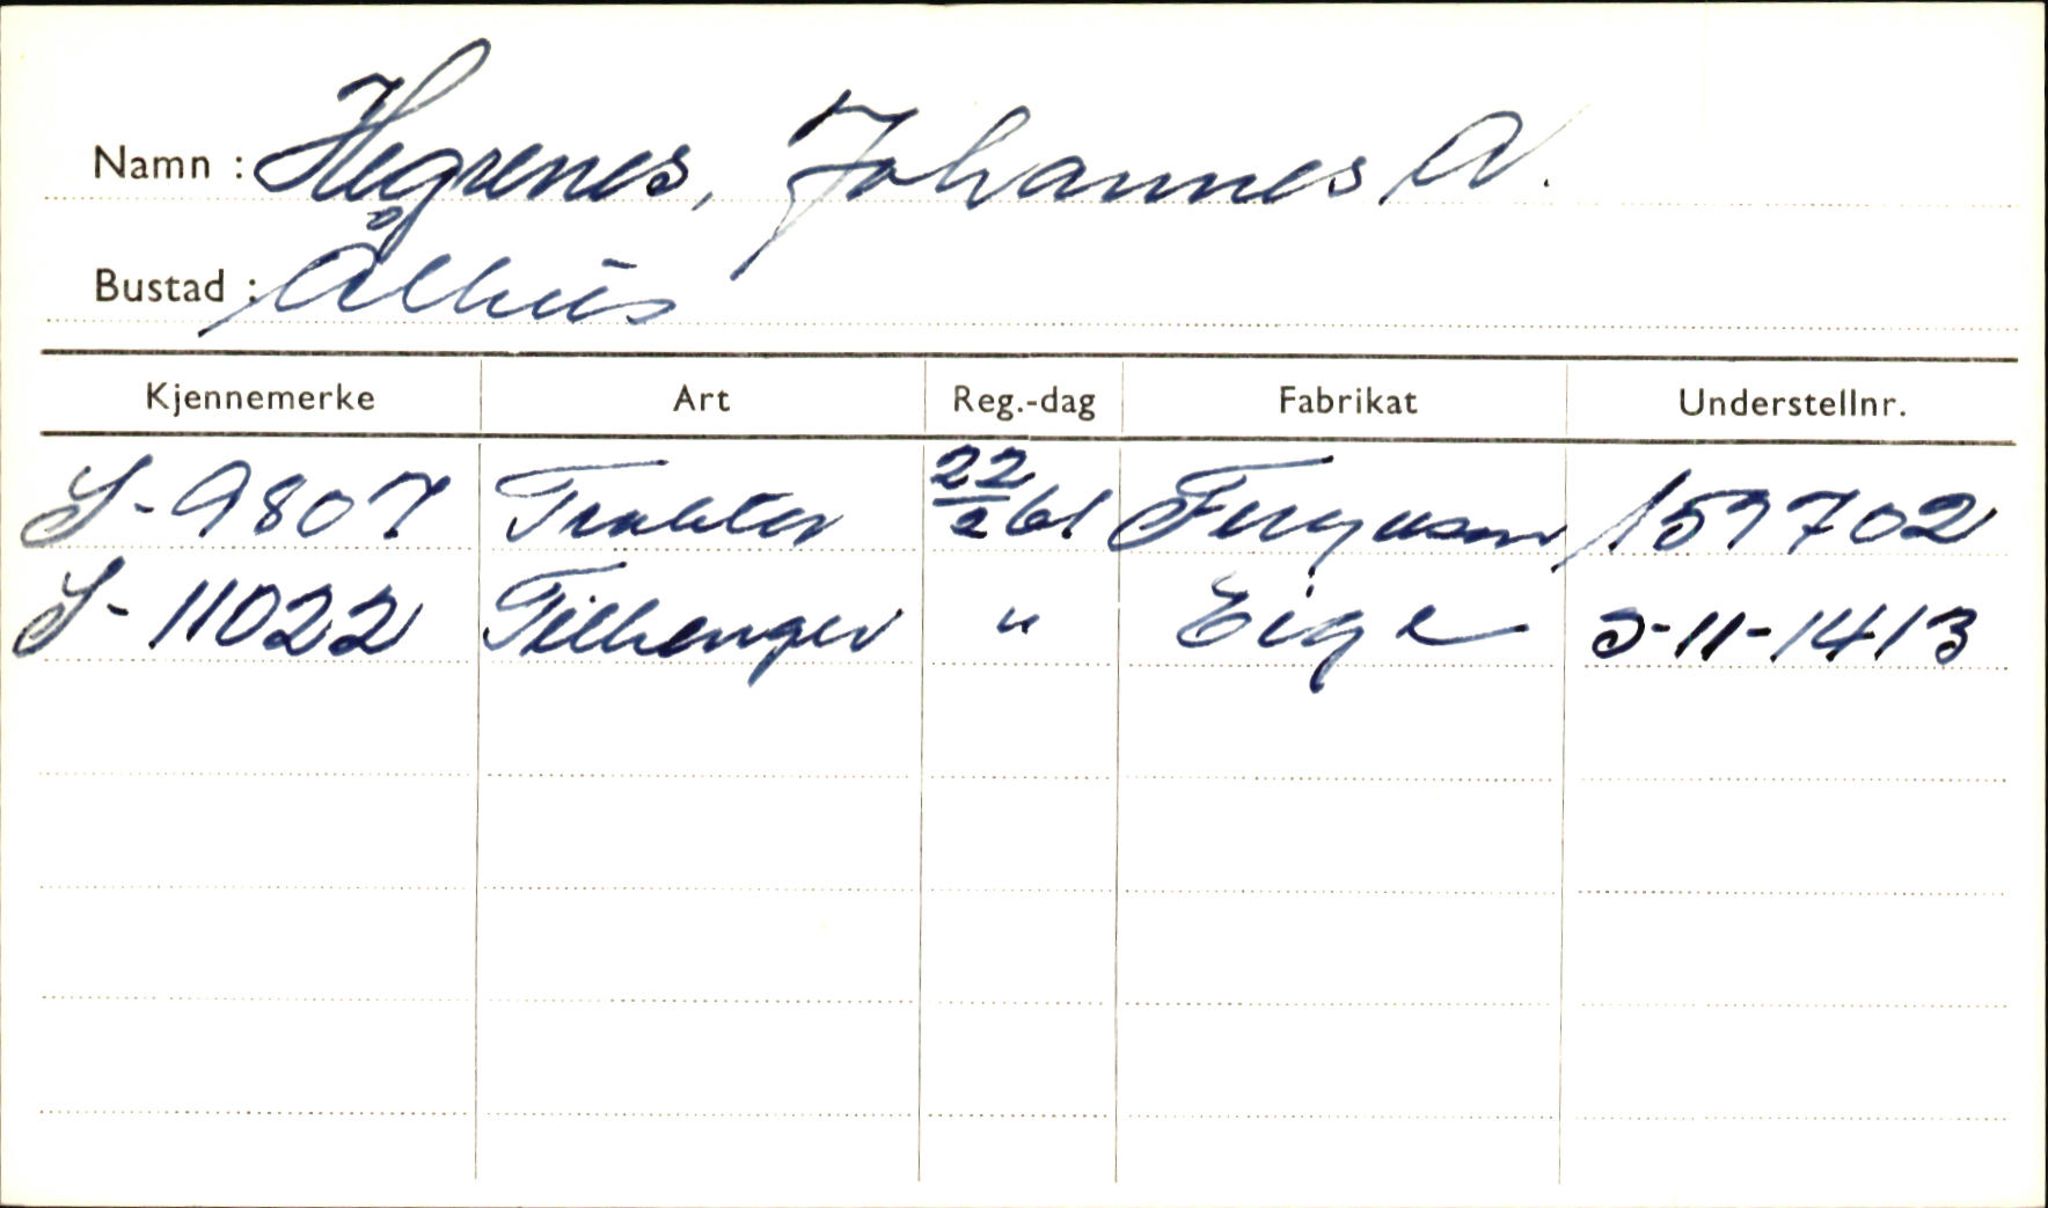 Namn : Hegrenes, Johannes N.
Bustad : Ålhus
Kjennemerke Art Reg.-dag Fabrikat Understellnr.
S-9807 Traktor 22/2 61 Ferguson 159702
S-11022 Tilhenger " Eige J-11-1413